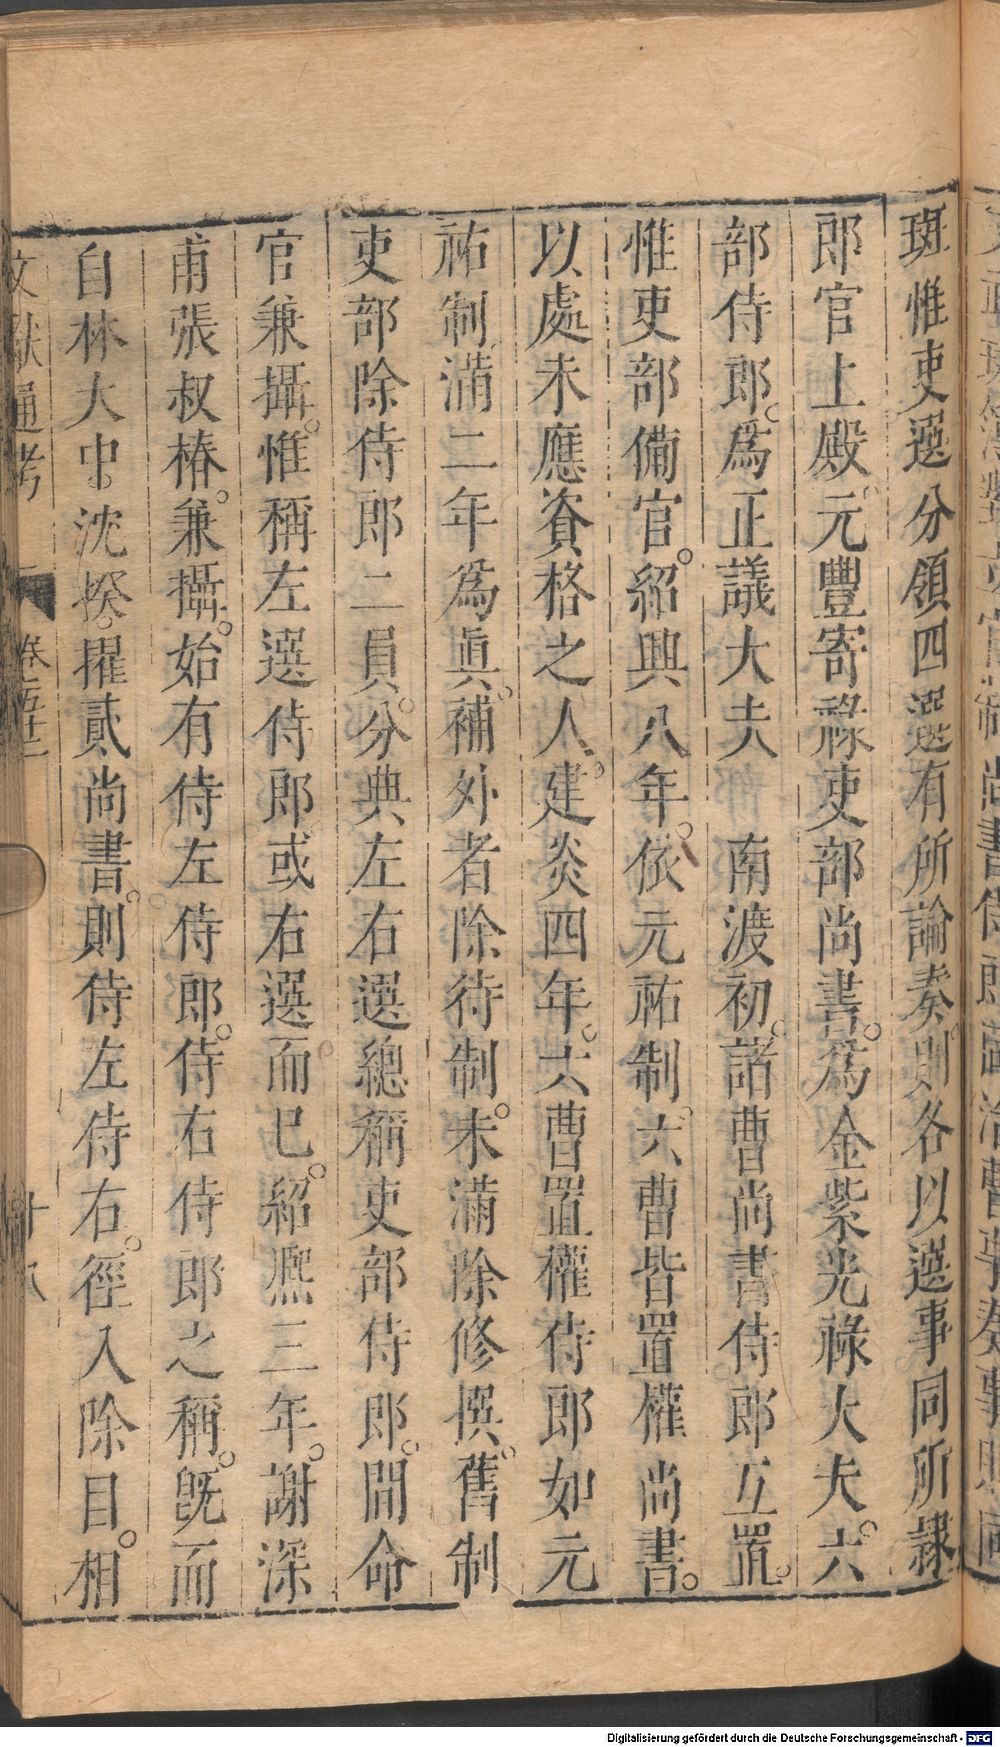 班惟吏選分領四選有所論奏則各以選事同所隸
郎官上殿元豐寄祿吏部尚書。爲金紫光祿大夫。六
部侍郎。爲正議大夫　南渡初。諸曹尚書侍郎互置。
惟吏部備官。紹興八年。依元祐制。六曹皆置權尚書。
以處未應資格之人。建炎四年。六曹置權侍郎如元
祐制滿二年爲眞。補外者除待制。未滿除修撰。舊制
吏部除侍郎二員。分典左右選總稱吏部侍郎。間命
官兼攝。惟稱左選侍郎或右選而已。紹熙三年。謝深
甫張叔椿。兼攝。始有侍左侍郎。侍右侍郎之稱。旣而
自林大中。沈揆。擢貳尚書。則侍左侍右。徑入除目。相
文獻通考
卷五十二
十八
Digitalisierung gefördert durch die Deutsche Forschungsgemeinschaft - DFG